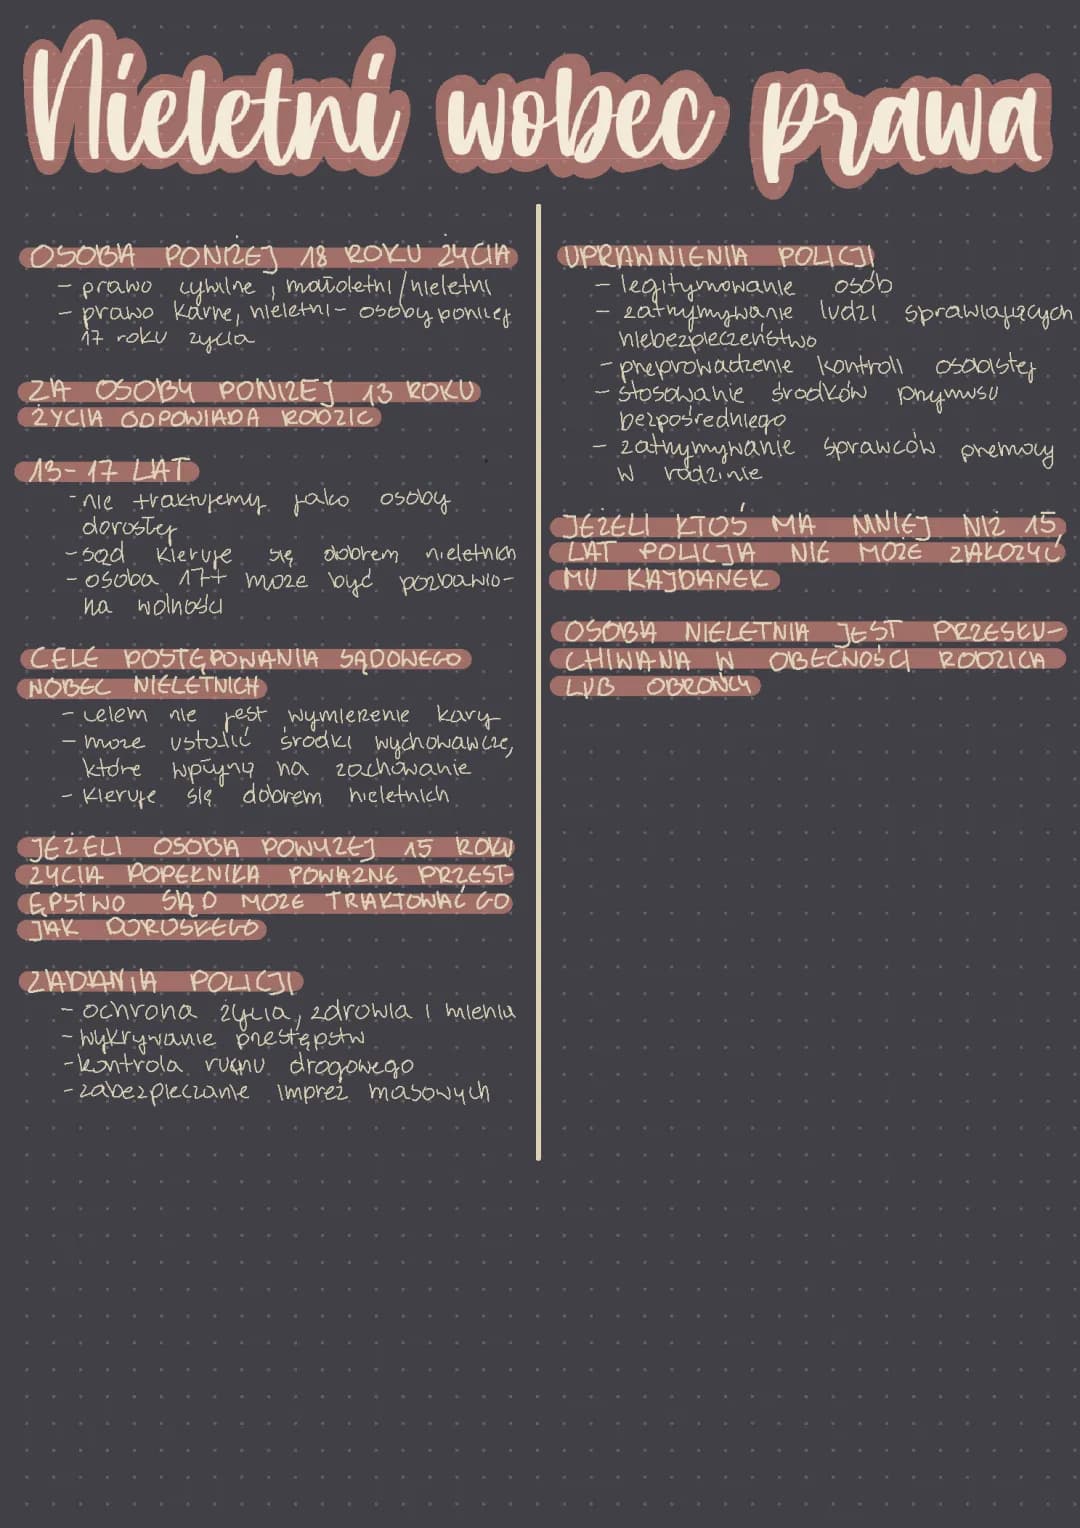 Nieletni wobec prawa
OSOBA PONIŻEJ 18 ROKU ŻYCIA
- prawo cywilne, małoletni/nieletni
- prawo karne, nieletni - osoby poniżej
17 roku życia
ZA OSOBY PONIŻEJ 13 ROKU
ŻYCIA ODPOWIADA RODZIC
13-17 LAT
- nie traktujemy jako osoby
dorosłej
- sąd kieruje się dobrem nieletnich
- osoba 17+ może być pozbawio-
na wolności
CELE POSTĘPOWANIA SĄDOWEGO
WOBEC NIELETNICH
- celem nie jest wymierzenie kary
- może ustalić środki wychowawcze,
które wpłyną na zachowanie
- kieruje się dobrem nieletnich
JEŻELI OSOBA POWYŻEJ 15 ROKU
ŻYCIA POPEŁNIŁA POWAŻNE PRZEST-
ĘPSTWO SĄD MOŻE TRAKTOWAĆ GO
JAK DOROSŁEGO
ZADANIA POLICJI
- ochrona życia, zdrowia i mienia
- wykrywanie przestępstw
- kontrola ruchu drogowego
- zabezpieczanie imprez masowych
UPRAWNIENIA POLICJI
- legitymowanie osób
- zatrzymywanie ludzi sprawiających
niebezpieczeństwo
- przeprowadzenie kontroli osobistej
- stosowanie środków przymusu
bezpośredniego
- zatrzymywanie sprawców przemocy
w rodzinie
JEŻELI KTOŚ MA MNIEJ NIŻ 15
LAT POLICJA NIE MOŻE ZAŁOŻYĆ
MU KAJDANEK
OSOBA NIELETNIA JEST PRZESŁU-
CHIWANA W OBECNOŚCI RODZICA
LUB OBROŃCY